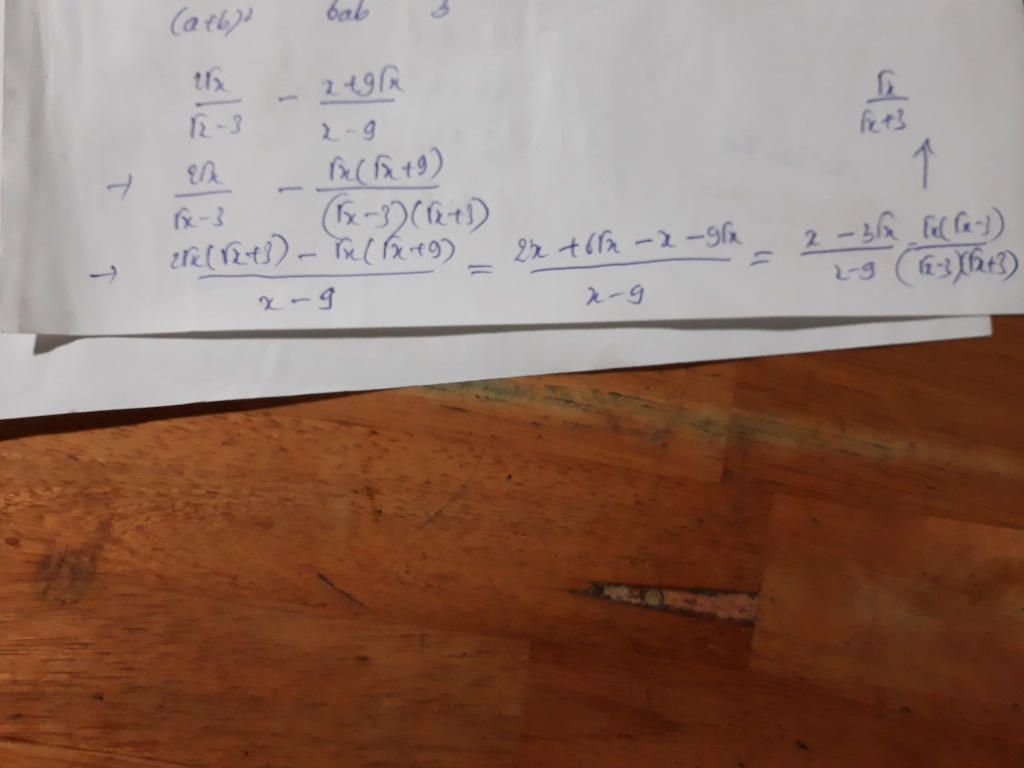 (a+b)² 6ab 3
2√x/(√x-3) - (x+9√x)/(x-9)
√x/(√x+3)
↑
→ 2√x/(√x-3) - √x(√x+9)/((√x-3)(√x+3))
→ (2√x(√x+3) - √x(√x+9))/(x-9) = (2x+6√x-x-9√x)/(x-9) = (x-3√x)/(x-9) = √x(√x-3)/((√x-3)(√x+3))